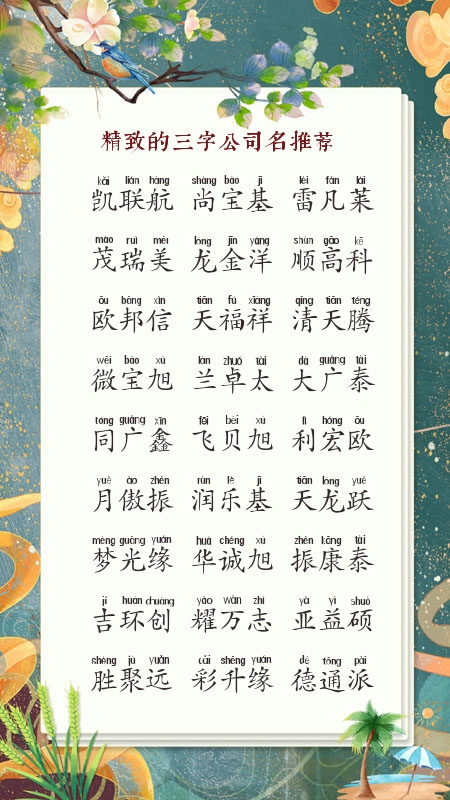 精致的三字公司名推荐
kǎi lián háng shàng bǎo jī léi fán lái
凯联航 尚宝基 雷凡莱
mào ruì měi lóng jīn yáng shùn gāo kē
茂瑞美 龙金洋 顺高科
ōu bāng xìn tiān fú xiáng qīng tiān téng
欧邦信 天福祥 清天腾
wēi bǎo xù lán zhuó tài dà guǎng tài
微宝旭 兰卓太 大广泰
tóng guǎng xīn fēi bèi xù lì hóng ōu
同广鑫 飞贝旭 利宏欧
yuè ào zhèn rùn lè jī tiān lóng yuè
月傲振 润乐基 天龙跃
mèng guāng yuán huá chéng xù zhèn kāng tài
梦光缘 华诚旭 振康泰
jí huán chuàng yào wàn zhì yà yì shuò
吉环创 耀万志 亚益硕
shèng jù yuǎn cǎi shēng yuán dé tōng pài
胜聚远 彩升缘 德通派